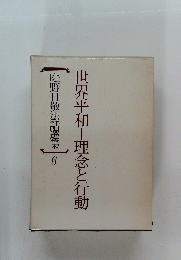 世界平和―理念と行動
庭野日敬法話選集 6